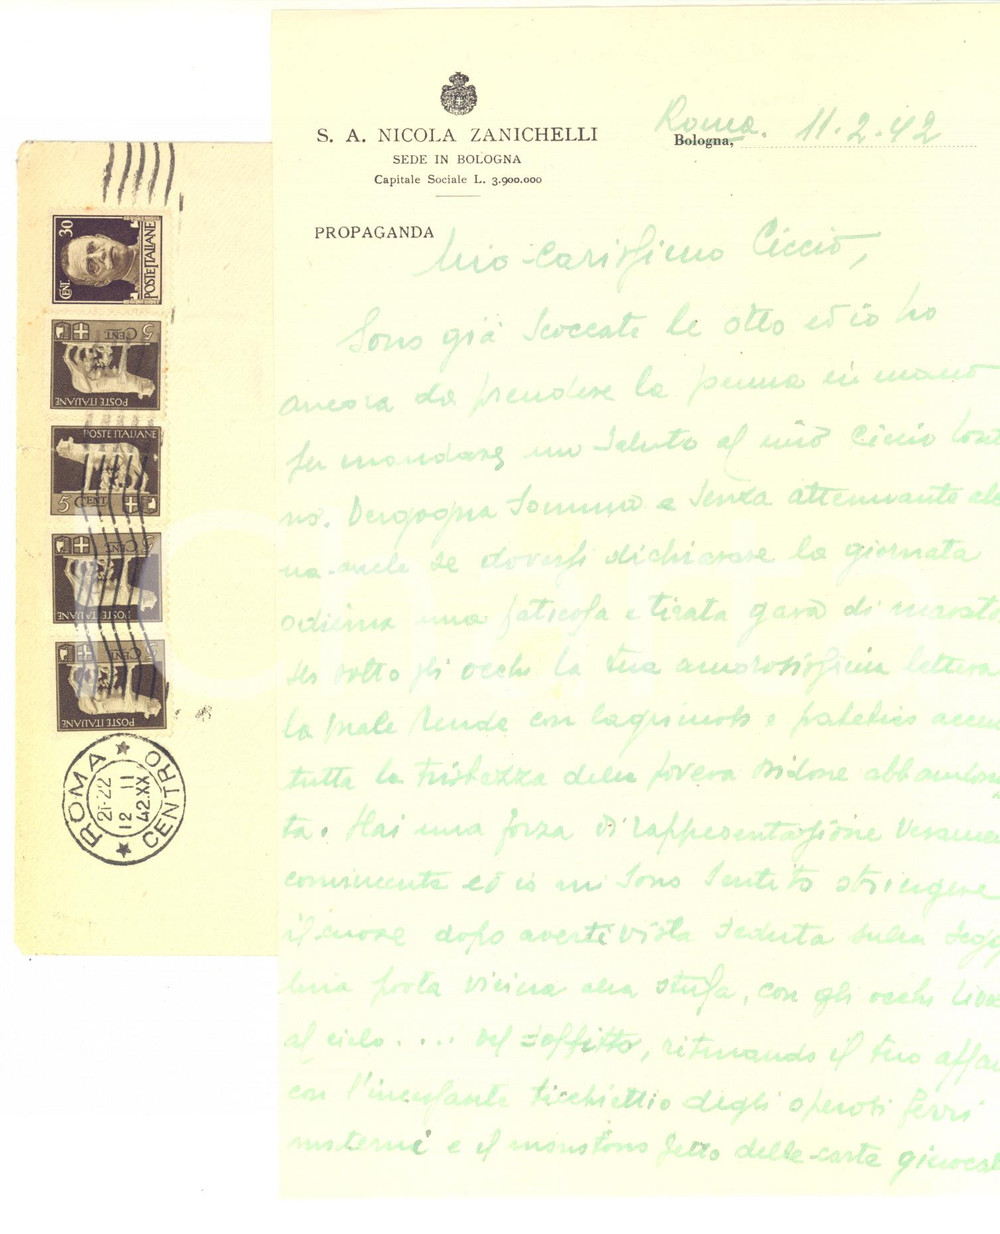 S. A. NICOLA ZANICHELLI
SEDE IN BOLOGNA
Capitale Sociale L. 3.900.000
PROPAGANDA
Roma. 11.2.42
Bologna,
Mio carissimo Ciccio,
Sono già scoccate le otto ed io ho
ancora da prendere la penna in mano
per mandare un saluto al mio Ciccio
no. Vergogna somma e senza attenuante
na anche se dovessi dichiarare la giornata
odierna una faticosa e tirata gara di
sotto gli occhi la tua amorosissima lettera
la quale rende con lagrimoso e patetico
tutta la tristezza della povera Didone
ta. Hai una forza di rappresentazione
convincente ed io mi sono sentito stringere
il cuore dopo averti vista seduta sulla
posta vicina alla stufa, con gli occhi
al cielo.... del soffitto, ritmando il tuo
con l'incessante ticchettio degli operosi ferri
materni e il monotono getto delle carte
30
CENT.
POSTE ITALIANE
5 CENT.
POSTE ITALIANE
POSTE ITALIANE
5 CENT.
5 CENT.
POSTE ITALIANE
5 CENT.
POSTE ITALIANE
ROMA CENTRO
21-22
12 II
42.XX